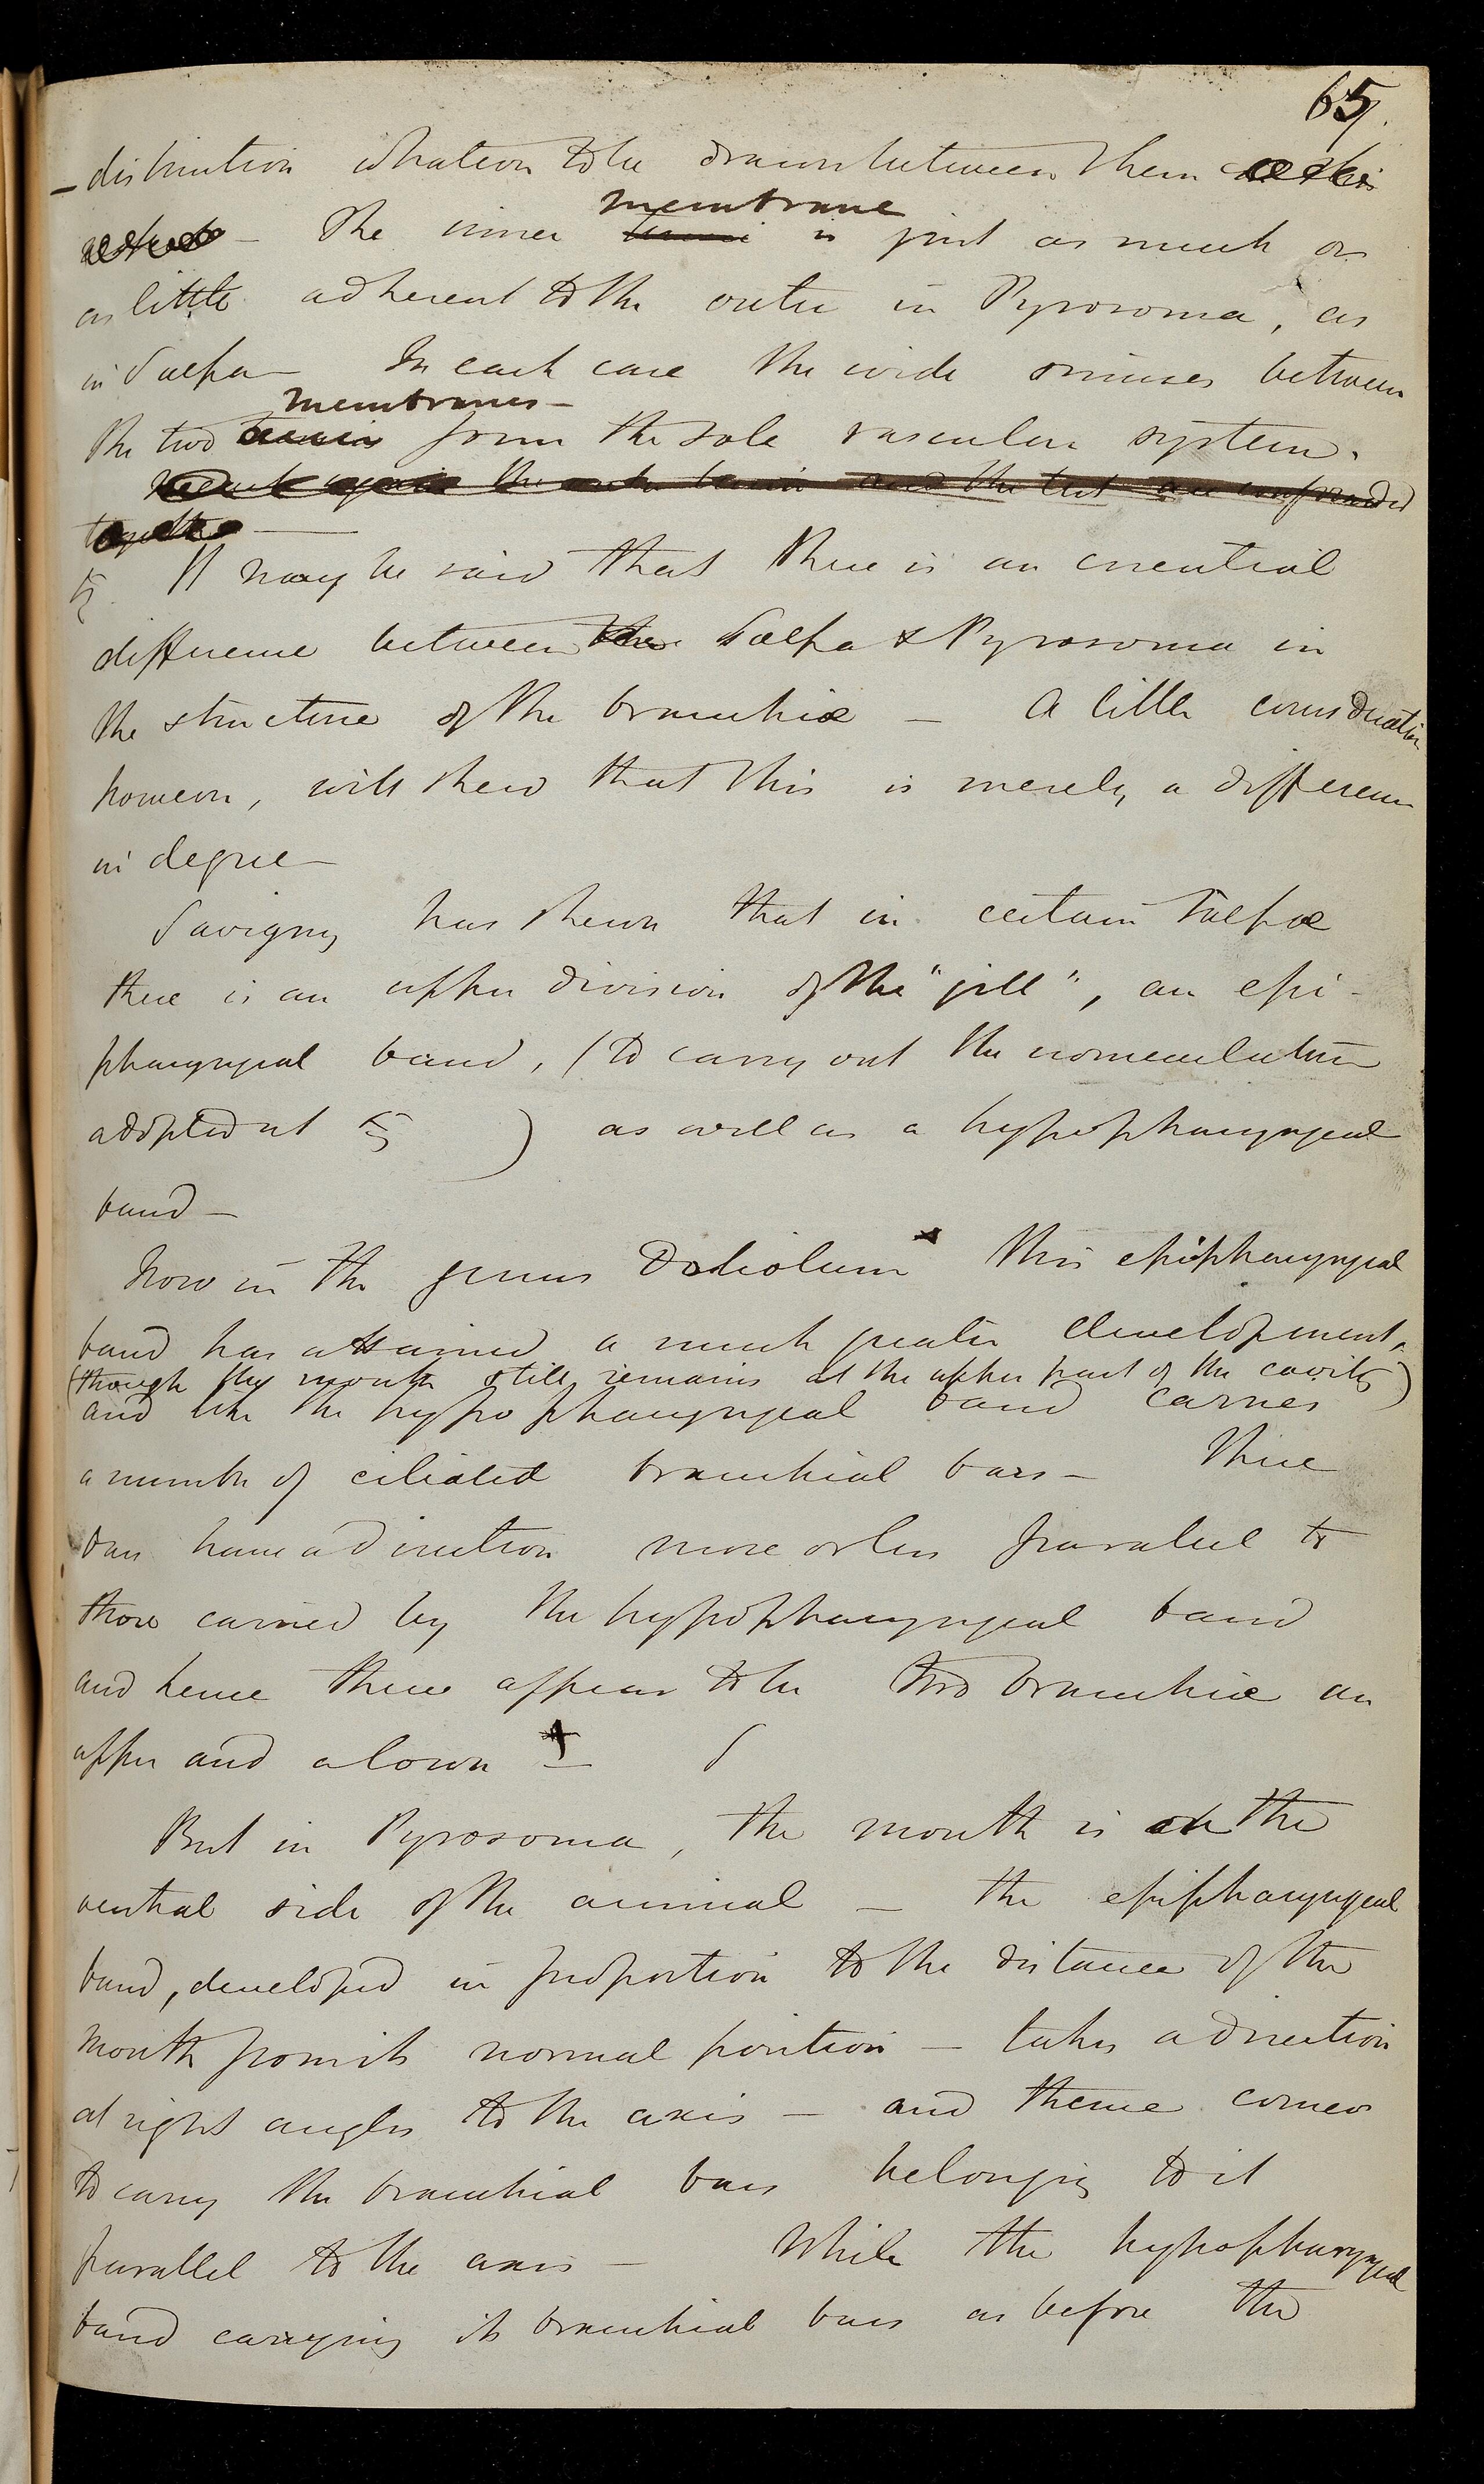 65
- distinction whatever to be drawn between them
membrane
- The inner tunic is just as much or
as little adherent to the outer in Pyrosoma, as
in Salpa - In each case the wide sinuses between
membranes -
the two tunics form the sole vascular system.
the outer tunic and the test are confounded
together -
§. It may be said that there is an essential
difference between the Salpa & Pyrosoma in
the structure of the branchiæ - A little consideration
however, will shew that this is merely a difference
in degree -
Savigny has shewn that in certain Salpæ
there is an upper division of the "gill", an epi-
pharyngeal band, (to carry out the nomenclature
adopted at § ) as well as a hypopharyngeal
band -
Now in the genus Doliolum x this epipharyngeal
band has attained a much greater development,
(though the mouth still remains at the upper part of the cavity)
and like the hypopharyngeal band carries
a number of ciliated branchial bars - These
bars have a direction more or less parallel to
those carried by the hypopharyngeal band
and hence there appear to be two branchiæ an
upper and a lower + -
But in Pyrosoma, the mouth is on the
ventral side of the animal - the epipharyngeal
band, developed in proportion to the distance of the
mouth from its normal position - takes a direction
at right angles to the axis - and thence comes
to carry the branchial bars belonging to it
parallel to the axis - While the hypopharyngeal
band carrying its branchial bars as before the